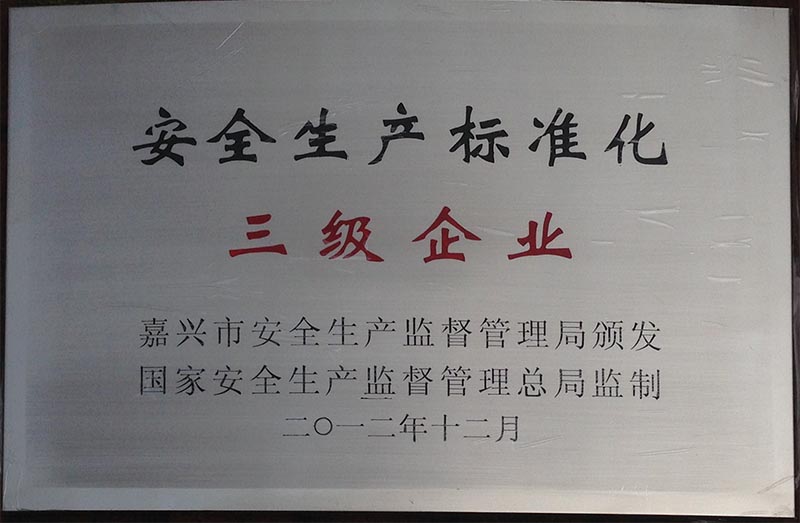 安全生产标准化
三级企业
嘉兴市安全生产监督管理局颁发
国家安全生产监督管理总局监制
二〇一二年十二月